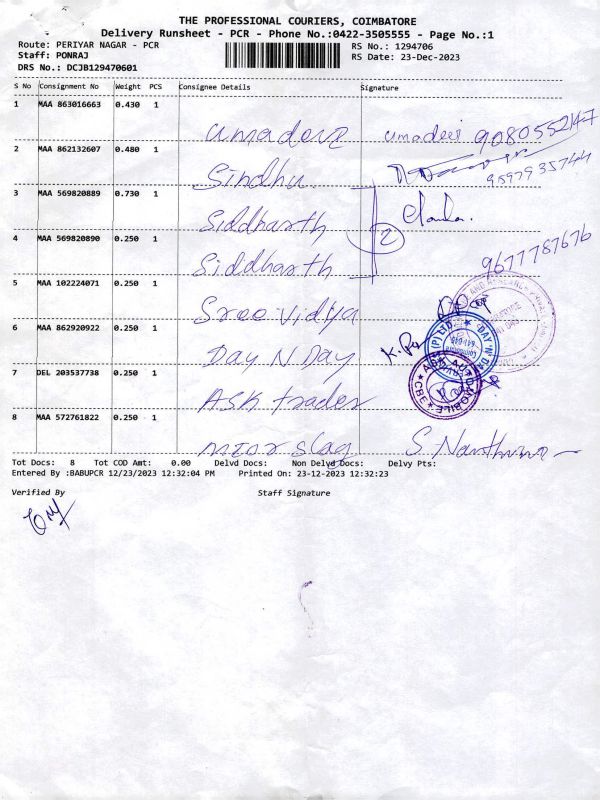 THE PROFESSIONAL COURIERS, COIMBATORE
Delivery Runsheet - PCR - Phone No.:0422-3505555 - Page No.:1
Route: PERIYAR NAGAR - PCR RS No.: 1294706
Staff: PONRAJ RS Date: 23-Dec-2023
DRS No.: DCJB129470601
S No Consignment No Weight PCS Consignee Details Signature
1 MAA 863016663 0.430 1 umadevi umadevi 9080552147
2 MAA 862132607 0.480 1 Sindhu 9597935744
3 MAA 569820889 0.730 1 Siddharth
4 MAA 569820890 0.250 1 Siddharth 2 9677787676
5 MAA 102224071 0.250 1 Sree vidya
6 MAA 862920922 0.250 1 DAY N DAY
7 DEL 203537738 0.250 1 ASK trader
8 MAA 572761822 0.250 1
Tot Docs: 8 Tot COD Amt: 0.00 Delvd Docs: Non Delvd Docs: Delvy Pts:
Entered By :BABUPCR 12/23/2023 12:32:04 PM Printed On: 23-12-2023 12:32:23
Verified By Staff Signature